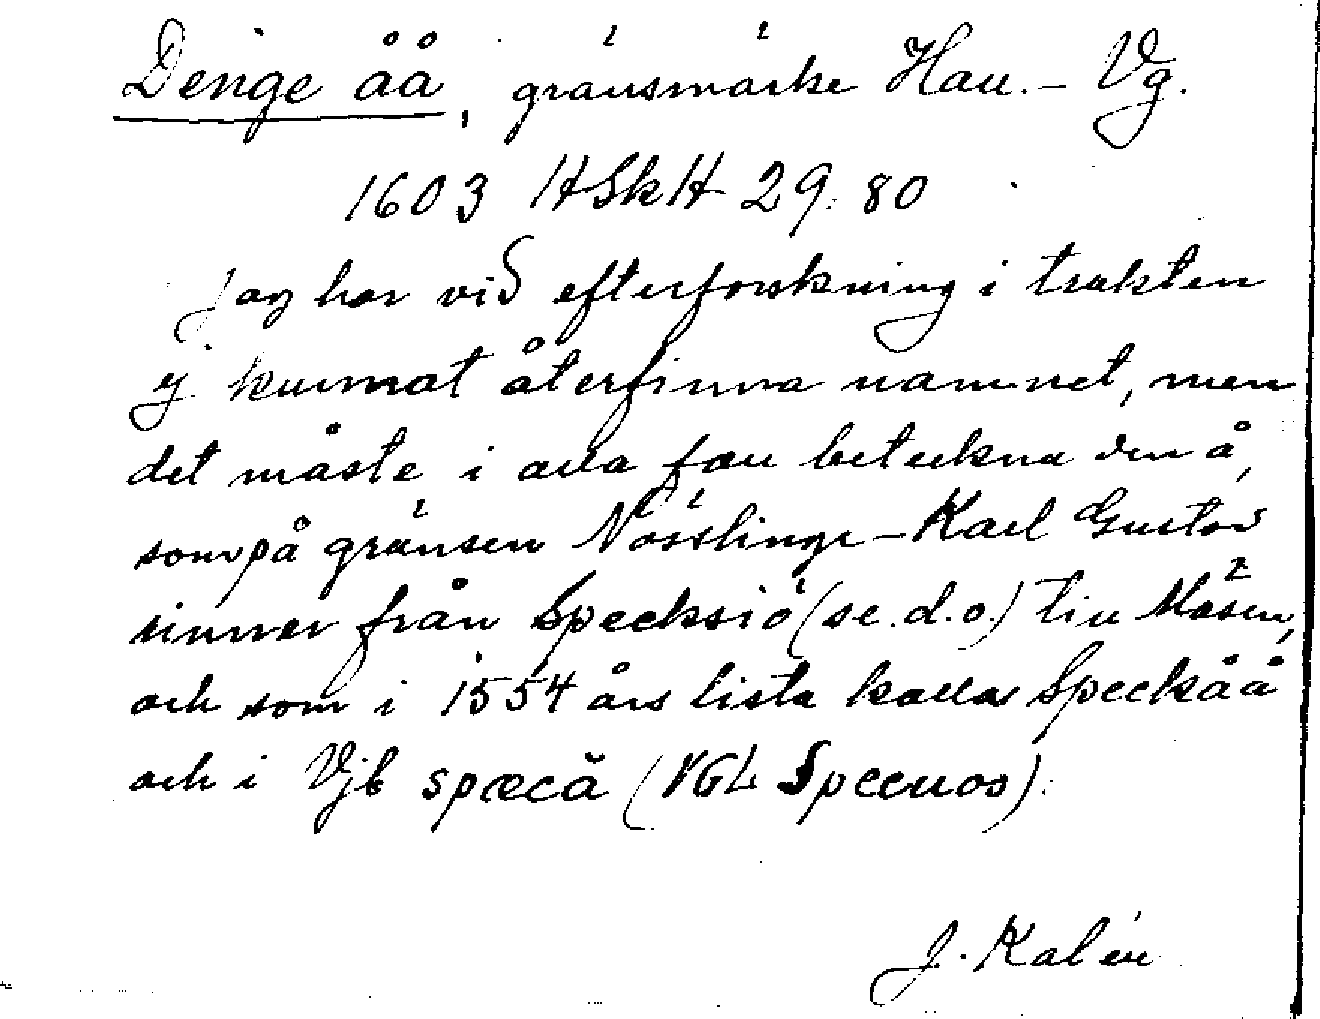 Denge åå, gränsmärke Hall. - Vg.
1603 HSkH 29:80
Jag har vid efterforskning i trakten
ej kunnat återfinna namnet, men
det måste i alla fall beteckna den å,
som på gränsen Nösslinge - Karl Gustav
rinner från Specksiö (se d.o.) till Mäsen,
och som i 1554 års lista kallas Speckåå
och i Vjb spæcā (VGL Specuos).
J. Kalén